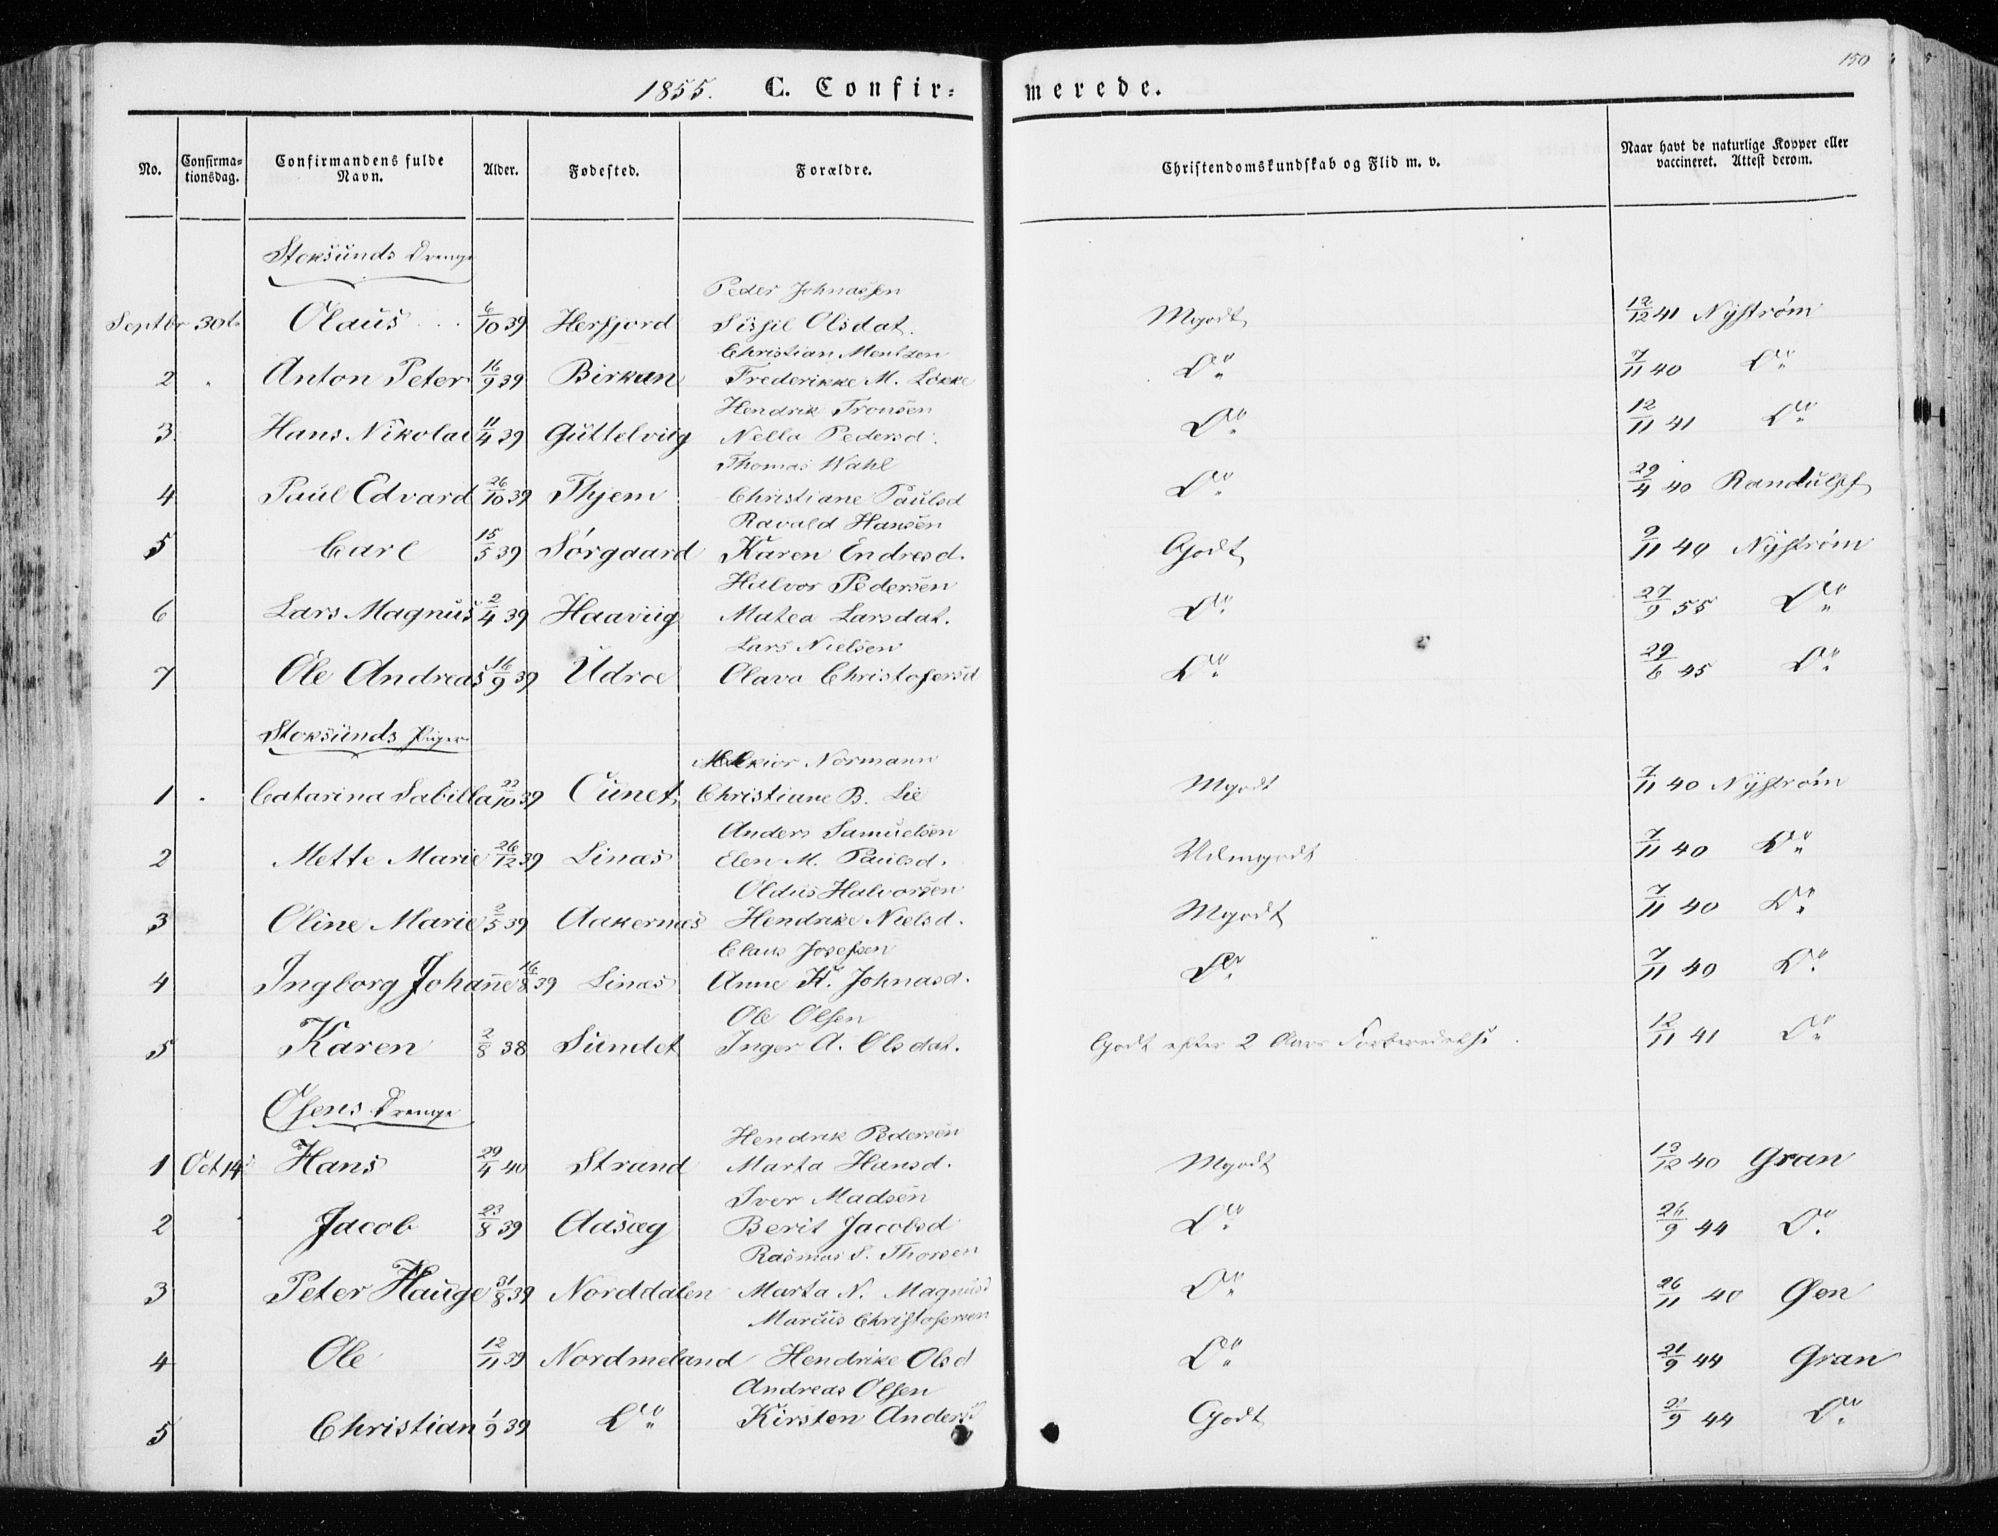 150
1855. C. Confir= merede.
No. Confirma-tionsdag. Confirmandens fulde Navn. Alder. Fødested. Forældre. Christendomskundskab og Flid m. v. Naar havt de naturlige Kopper eller vaccineret. Attest derom.
Stoksunds Drenge
Peder Johnassen
Septbr 30te Olaus 6/10 39 Herfjord Sissil Olsdat. Mgodt 12/12 41 Nystrøm
Christian Mentzen
2 Anton Peter 16/9 39 Birkan Frederikke M. Løkke Do 7/11 40 Do
Hendrik Tronsen
3 Hans Nikolai 11/4 39 Guttelviig Nella Pedersd. Do 12/11 41 Do
Thomas Wahl
4 Paul Edvard 26/10 39 Thjem Christiane Paulsd Do 29/4 40 Randulff
Ravald Hansen
5 Carl 15/5 39 Sørgaard Karen Endresd. Godt 9/11 40 Nystrøm
Halvor Pedersen
6 Lars Magnus 2/4 39 Haaviig Matea Larsdat. Do 27/9 55 Do
Lars Nielsen
7 Ole Andreas 16/9 39 Udroe Olava Christofersd Do 29/6 45 Do
Stoksunds Piger
Melkior Normann
1 Catarina Sabilla 22/10 39 Cunet Christiane B. Lie Mgodt 7/11 40 Nystrøm
Anders Samuelsen
2 Mette Marie 26/12 39 Linæs Elen M. Paulsd. Udmgodt 7/11 40 Do
Oldus Halvorsen
3 Oline Marie 2/5 39 Aakernes Hendrike Nielsd. Mgodt 7/11 40 Do
Claus Josefsen
4 Ingborg Johanne 16/8 39 Linæs Anne K. Johnasd. Do 7/11 40 Do
Ole Olsen
5 Karen 2/8 38 Sundet Inger A. Olsdat. Godt efter 2 Aars Forberedelse 12/11 41 Do
Osens Drenge
Hendrik Pedersen
1 Oct 14 Hans 29/4 40 Strand Marta Hansd. Mgodt 13/12 40 Gran
Iver Madsen
2 Jacob 23/8 39 Aasæg Berit Jacobsd Do 26/9 44 Do
Rasmus S. Thorsen
3 Peter Hauge 31/8 39 Norddalen Marta N. Magnusd Do 26/11 40 Øen
Marcus Christofersen
4 Ole 12/11 39 Nordmeland Hendrike Olsd Do 21/9 44 Gran
Andreas Olsen
5 Christian 1/9 39 Do Kirsten Andersd Godt 2/9 44 Do